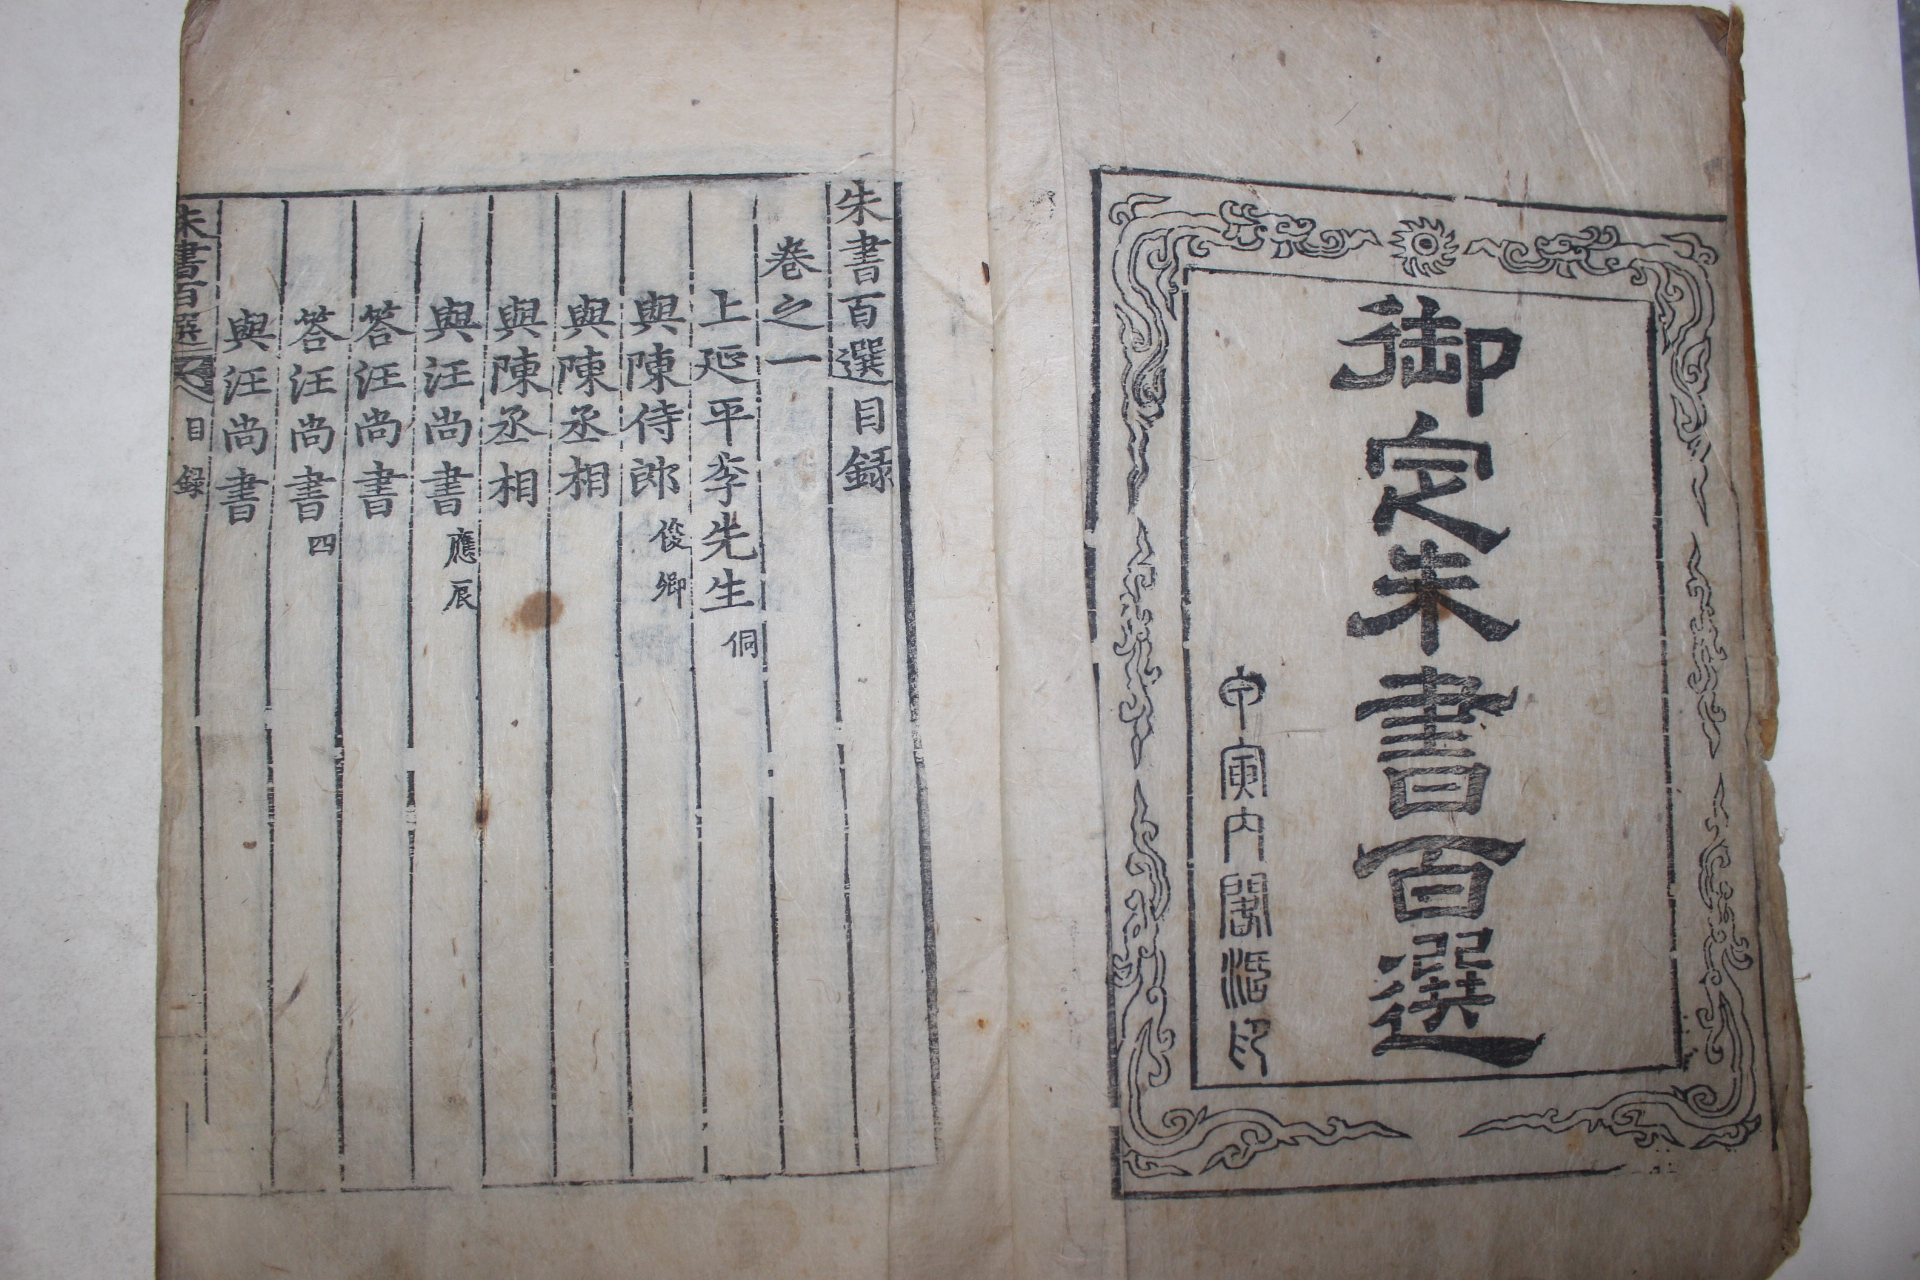 御定朱書百選
甲寅內閣活印
朱書百選目錄
卷之一
上延平李先生侗
與陳侍郎俊卿
與陳丞相
與陳丞相
與汪尚書應辰
答汪尚書
答汪尚書四
與汪尚書
朱書百選 目錄